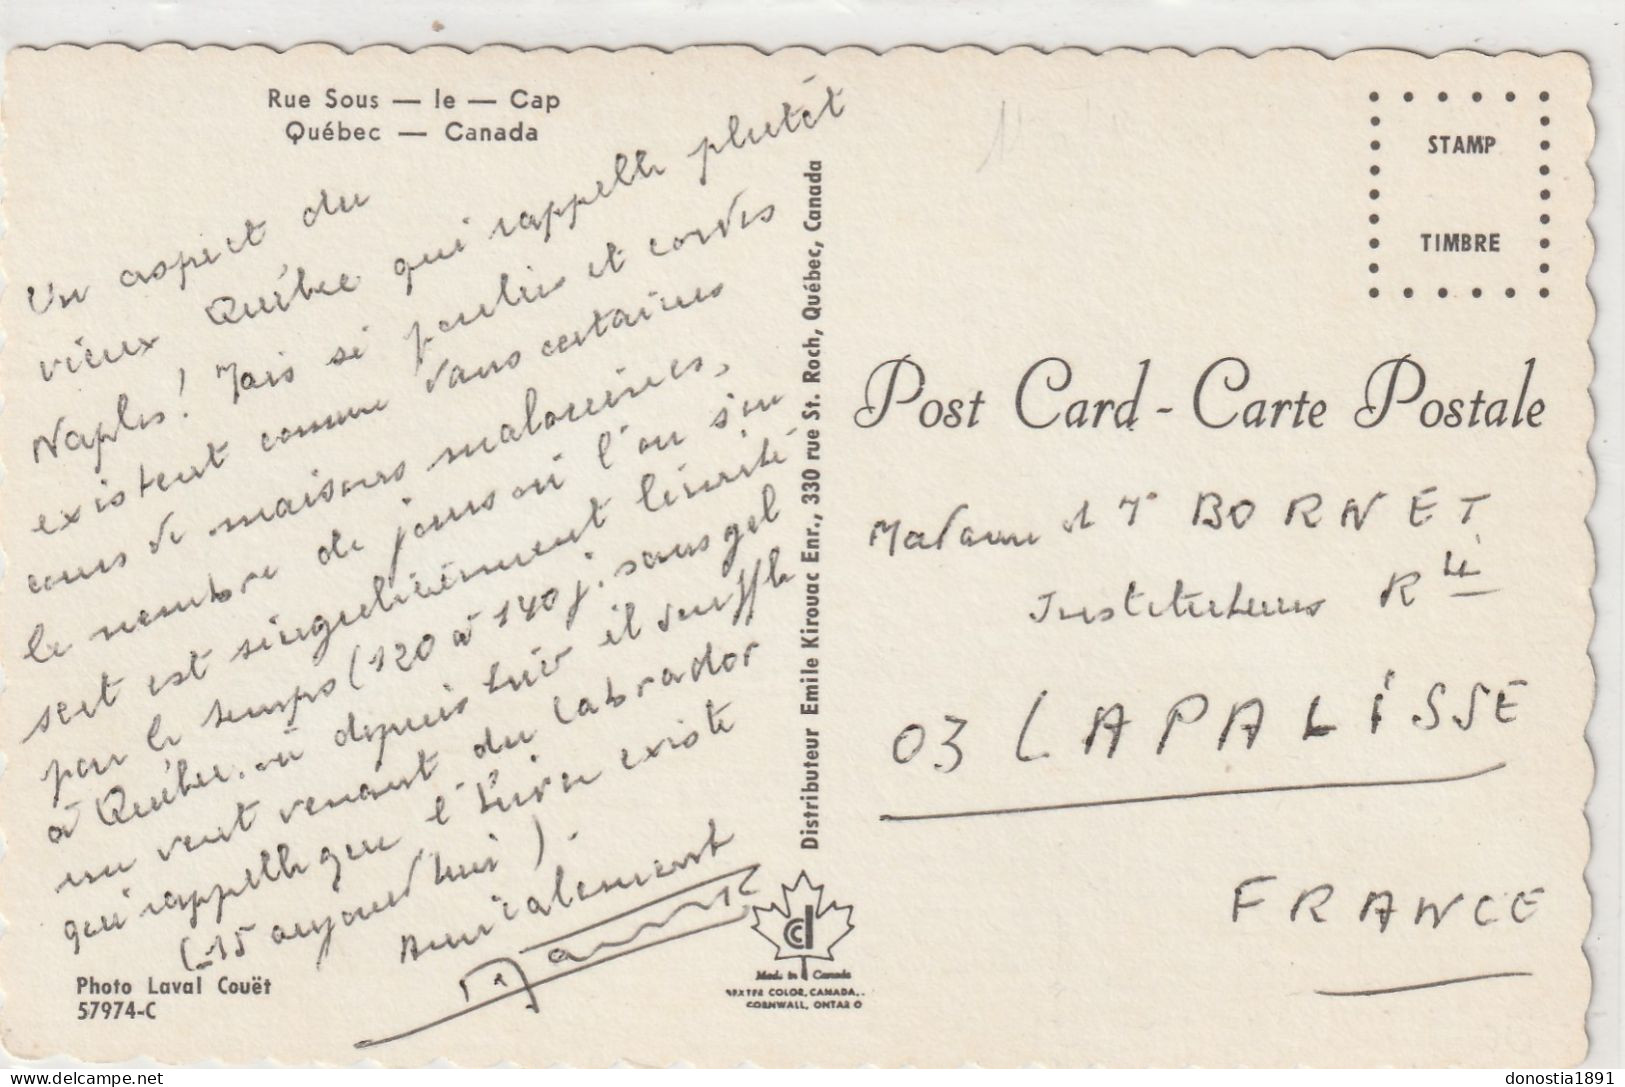 Rue Sous — le — Cap
Québec — Canada
Un aspect du
vieux Québec qui rappelle plutôt
Naples! Mais si poulies et cordes
existent comme dans certaines
cours de maisons malouines,
le nombre de jours où l'on s'en
sert est singulièrement limité
par le temps (120 à 140 j. sans gel
à Québec, où depuis hier il souffle
un vent venant du Labrador
qui rappelle que l'hiver existe
(-15 aujourd'hui).
Amicalement
Photo Laval Couët
57974-C
Distributeur Emile Kirouac Enr., 330 rue St. Roch, Québec, Canada
Made in Canada
DEXTER COLOR, CANADA,
CORNWALL, ONTARIO
STAMP
TIMBRE
Post Card - Carte Postale
Madame et Mr BORNET
Instituteurs Rte
03 LAPALISSE
FRANCE
donostia1891